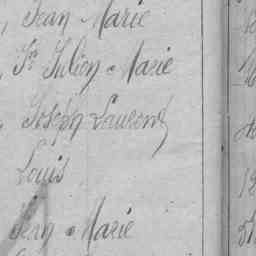 Jean Marie
Jn Julien Marie
Joseph Laurent
Louis
Jean Marie